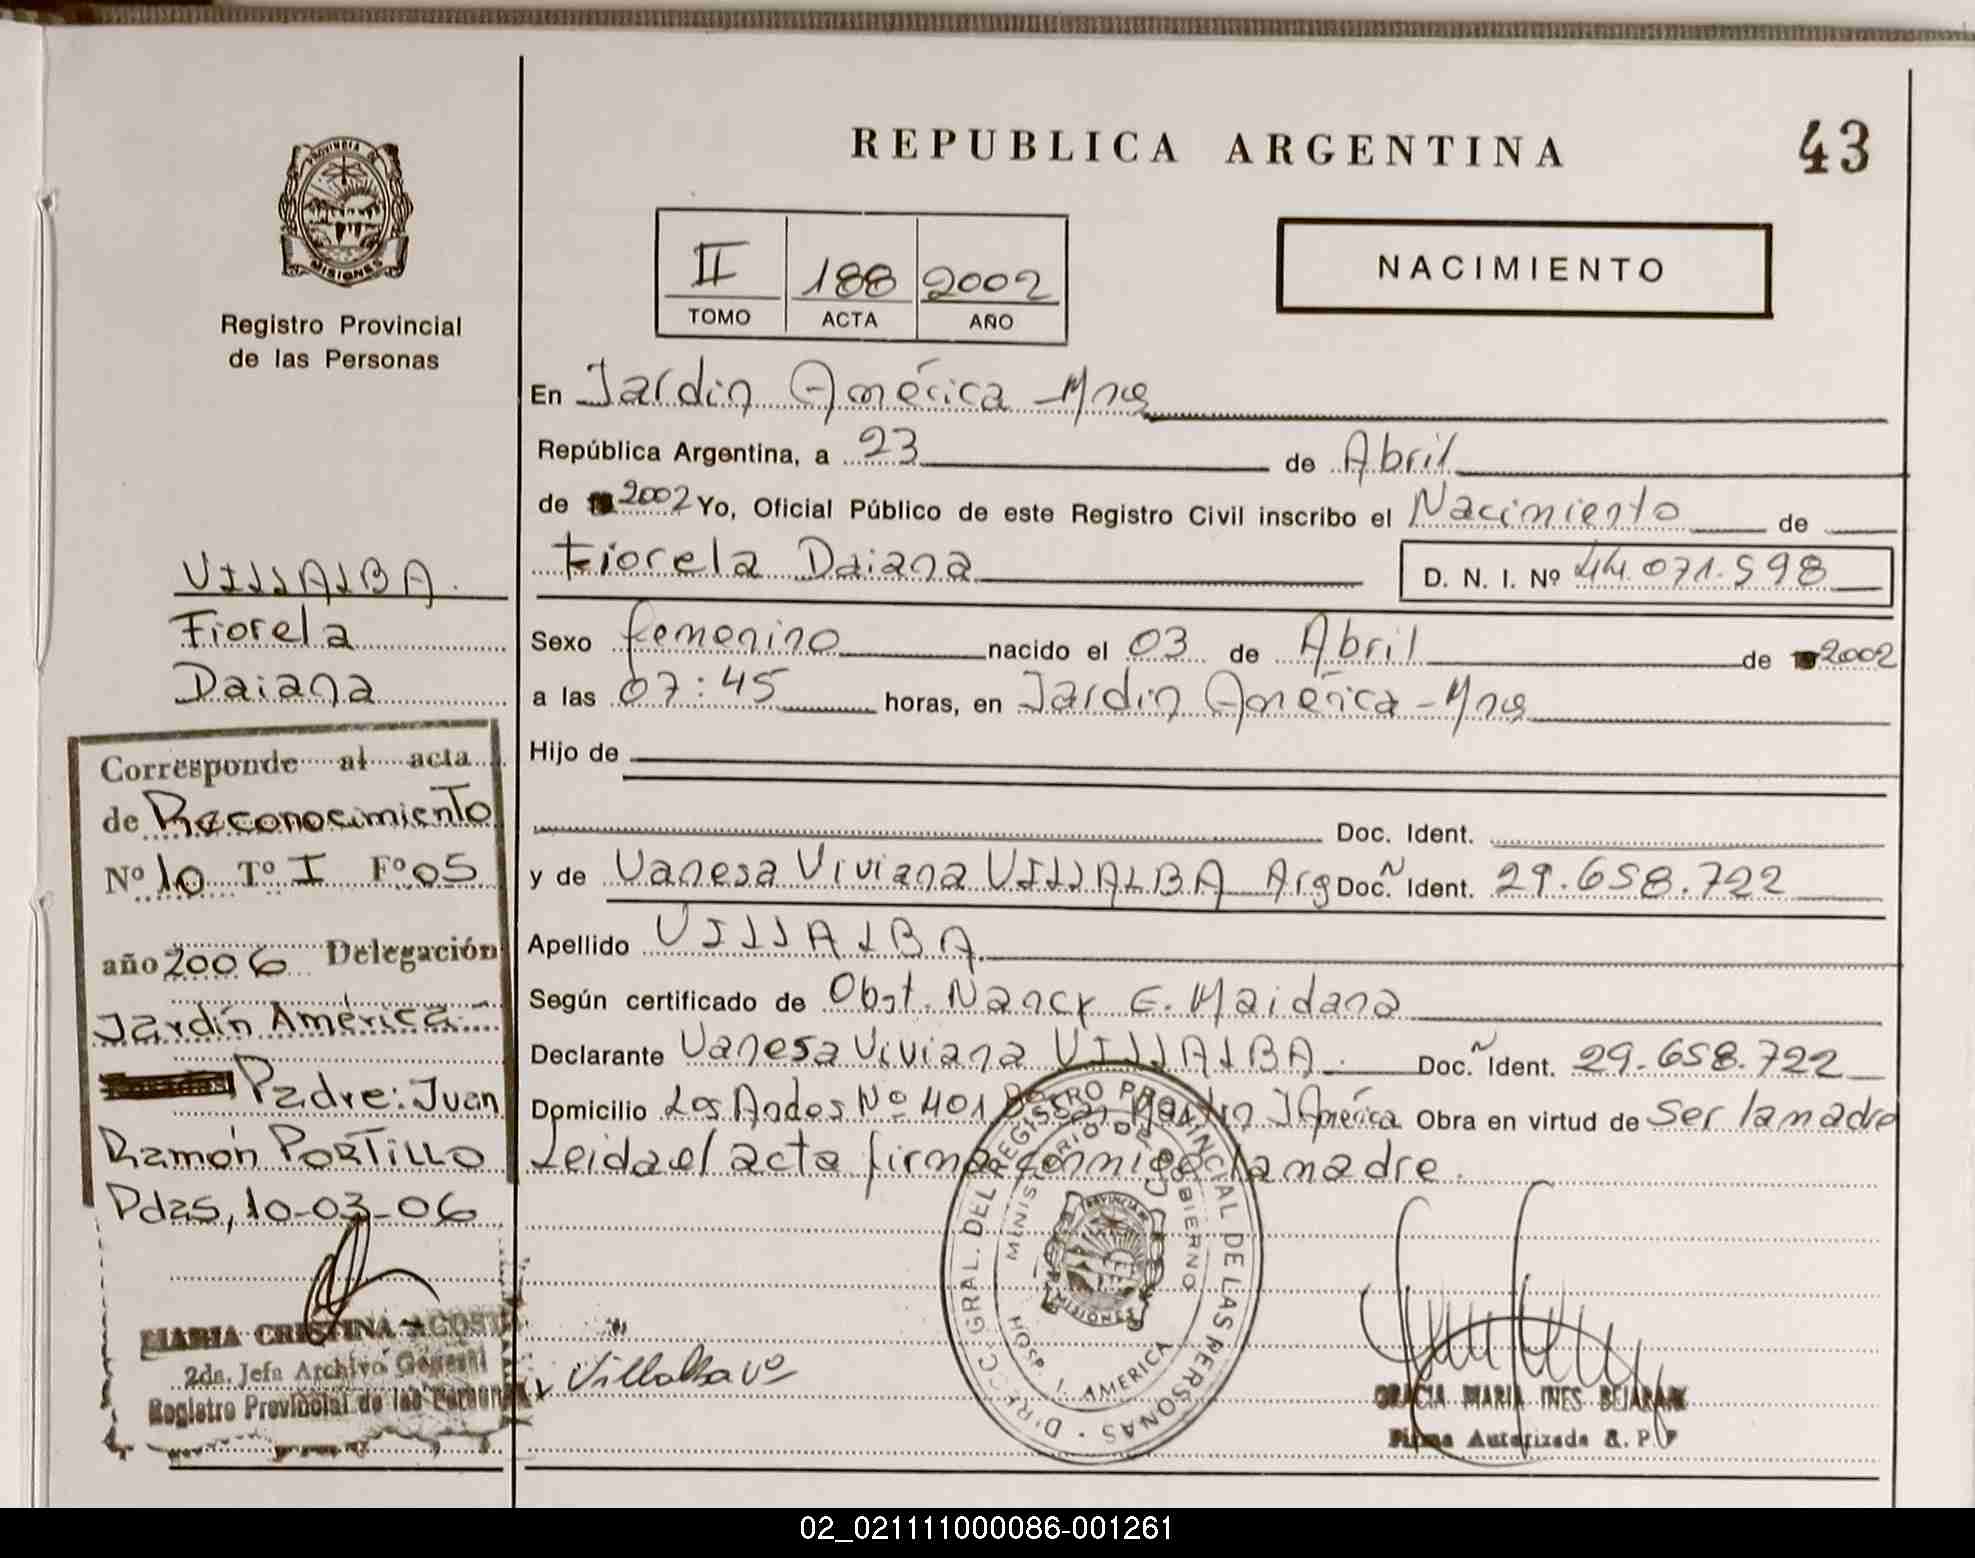 REPUBLICA ARGENTINA
43
PROVINCIA DE MISIONES
Registro Provincial
de las Personas
II 188 2002
TOMO ACTA AÑO
NACIMIENTO
En Jardin América - Mnes
República Argentina, a 23 de Abril
de 2002 Yo, Oficial Público de este Registro Civil inscribo el Nacimiento de
Fiorela Daiana D. N. I. Nº 44.071.598
Sexo femenino nacido el 03 de Abril de 2002
a las 07:45 horas, en Jardin América - Mnes
Hijo de
Doc. Ident.
y de Vanesa Viviana VILLALBA Arg Doc. Ident. 29.658.722
Apellido VILLALBA
Según certificado de Obst. Nancy E. Maidana
Declarante Vanesa Viviana VILLALBA. Doc. Ident. 29.658.722
Domicilio Los Andes Nº 401 Bº San Martin J América Obra en virtud de Ser la madre
Leida el acta firma conmigo la madre.
VILLALBA
Fiorela
Daiana
Corresponde al acta
de Reconocimiento
Nº 10 Tº I Fº 05
año 2006 Delegación
Jardín América
Padre: Juan
Ramón PORTILLO
Pdas, 10-03-06
MARIA CRISTINA ACOSTA
2da. Jefa Archivo General
Registro Provincial de las Personas
Villalba Vº
DIRECC. GRAL. DEL REGISTRO PROVINCIAL DE LAS PERSONAS
MINISTERIO DE GOBIERNO
HOSP. J. AMERICA
GRACIA MARIA INES BEJARANO
Firma Autorizada R. P. P
02_021111000086-001261